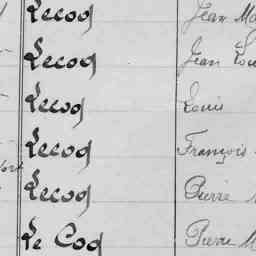 Lecoq Jean Ma
Lecoq Jean Lou
Lecoq Louis
Lecoq François
Lecoq Pierre
Le Coq Pierre M